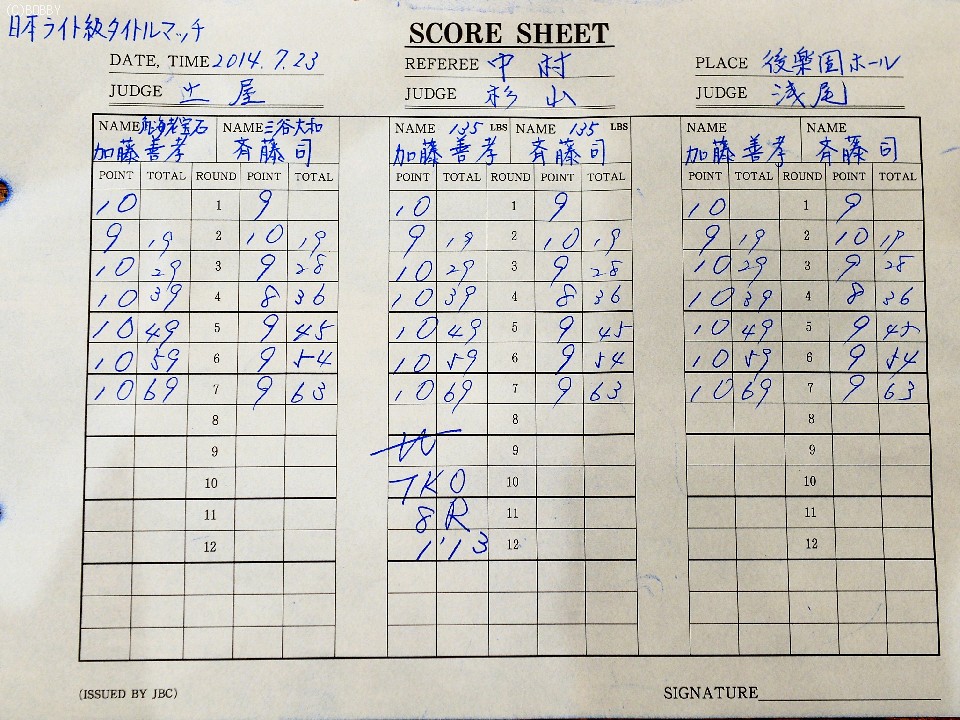 (C)BOBBY
日本ライト級タイトルマッチ
SCORE SHEET
DATE, TIME 2014.7.23 REFEREE 中村 PLACE 後楽園ホール
JUDGE 辻屋 JUDGE 杉山 JUDGE 浅尾
NAME 角海老宝石 NAME 三谷大和 NAME 135 LBS NAME 135 LBS NAME NAME
加藤善孝 斉藤司 加藤善孝 斉藤司 加藤善孝 斉藤司
POINT TOTAL ROUND POINT TOTAL POINT TOTAL ROUND POINT TOTAL POINT TOTAL ROUND POINT TOTAL
10 1 9 10 1 9 10 1 9
9 19 2 10 19 9 19 2 10 19 9 19 2 10 19
10 29 3 9 28 10 29 3 9 28 10 29 3 9 28
10 39 4 8 36 10 39 4 8 36 10 39 4 8 36
10 49 5 9 45 10 49 5 9 45 10 49 5 9 45
10 59 6 9 54 10 59 6 9 54 10 59 6 9 54
10 69 7 9 63 10 69 7 9 63 10 69 7 9 63
8 8 8
9 W 9 9
10 TKO 10 10
11 8R 11 11
12 1'13 12 12
(ISSUED BY JBC) SIGNATURE